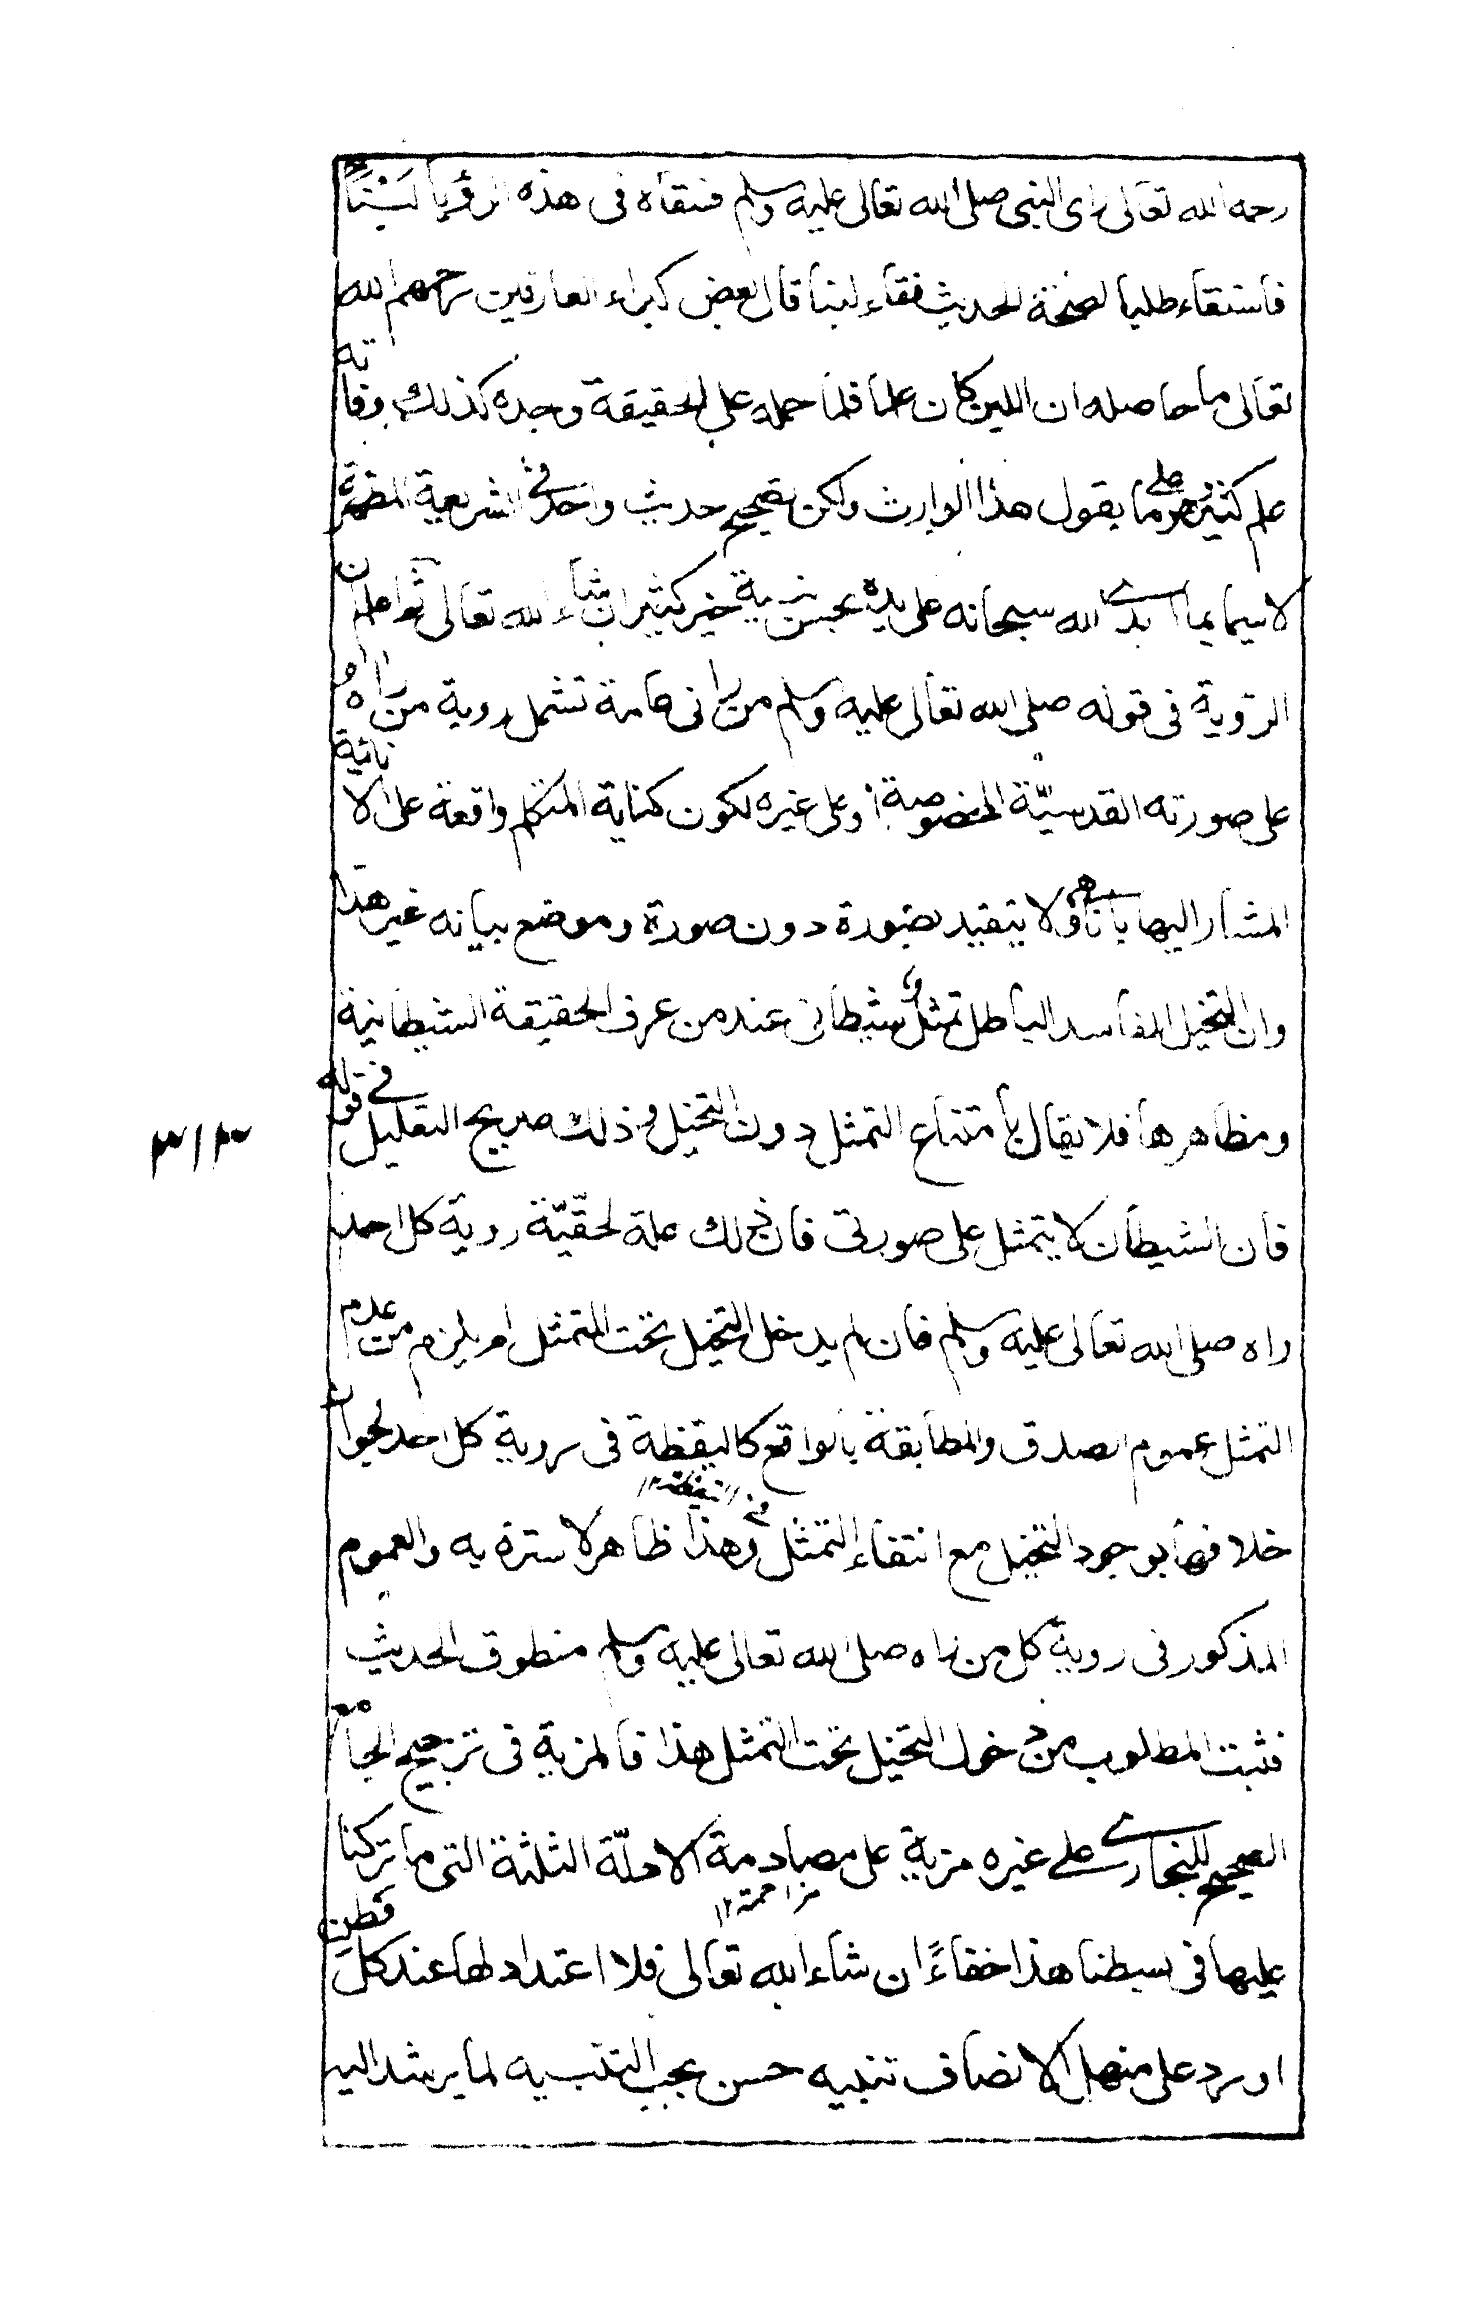 رحمه الله تعالى راى النبى صلى الله تعالى عليه وسلم فسقاه فى هذه الرؤيا لبنًا
فاستقاء طلبا لصحة الحديث فقاء لبنا قال بعض كبراء العارفين رحمهم الله
تعالى ما حاصله ان اللبن كان علما فلما حمله على الحقيقة وجده كذلك وفاته
علم كثير على ما يقول هذا الوارث ولكن تصحيح حديث واحد فى الشريعة المطهرة
لا سيما بما ابدى الله سبحانه على يده بحسن نية خير كثير ان شاء الله تعالى ثم اعلم ان
الروية فى قوله صلى الله تعالى عليه وسلم من رانى عامة تشمل روية من راه
على صورته القدسيّة المخصوصة او على غيره لكون كناية المتكلم واقعة على الانائية
المشار اليها بانا وهى لا يتقيد بصورة دون صورة وموضع بيانه غير هذا
وان التخيل الفاسد الباطل تمثل شيطانى عند من عرف الحقيقة الشيطانية
ومظاهرها فلا يقال بامتناع التمثل دون التخيل وذلك صريح التعليل فى قوله
فان الشيطان لا يتمثل على صورتى فان ذلك علة لحقيّة روية كل احد
راه صلى الله تعالى عليه وسلم فان لم يدخل التخيل تحت التمثل لم يلزم من عدم
التمثل عموم الصدق والمطابقة بالواقع كاليقظة فى روية كل احد لجواز
خلافها بوجود التخيل مع انتفاء التمثل وهذا ظاهر لا سترة به والعموم
المذكور فى روية كل من راه صلى الله تعالى عليه وسلم منطوق الحديث
فثبت المطلوب من دخول التخيل تحت التمثل هذا فالمزية فى ترجيح الجامع
الصحيح للبخارى على غيره مزية على مصادمة الادلّة الثلثة التى ما تركنا
مزاحمة ١٢
عليها فى بسطنا هذا خفاءً ان شاء الله تعالى فلا اعتداد لها عند كل فطن
اورد على منهل الانصاف تنبيه حسن يجب التنبيه لما يرشد اليه
٣١٣